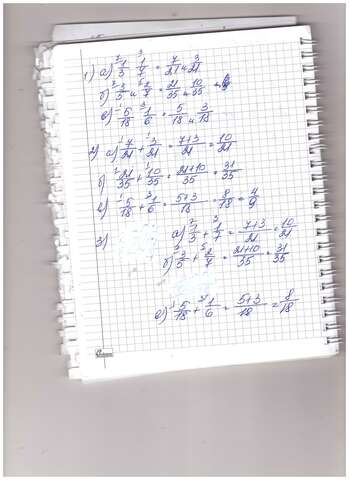 1) а) ⁷1/3 ³1/7 = 7/21 и 3/21
б) ⁷3/5 и ⁵2/7 = 21/35 и 10/35
в) ¹5/18 ³1/6 = 5/18 и 3/18
2) а) 7/21 + 3/21 = 7+3/21 = 10/21
б) 21/35 + 10/35 = 21+10/35 = 31/35
в) ¹5/18 + ³1/6 = 5+3/18 = 8/18 = 4/9
3) а) ⁷1/3 + ³1/7 = 7+3/21 = 10/21
б) ⁷3/5 + ⁵2/7 = 21+10/35 = 31/35
в) ¹5/18 + ³1/6 = 5+3/18 = 8/18